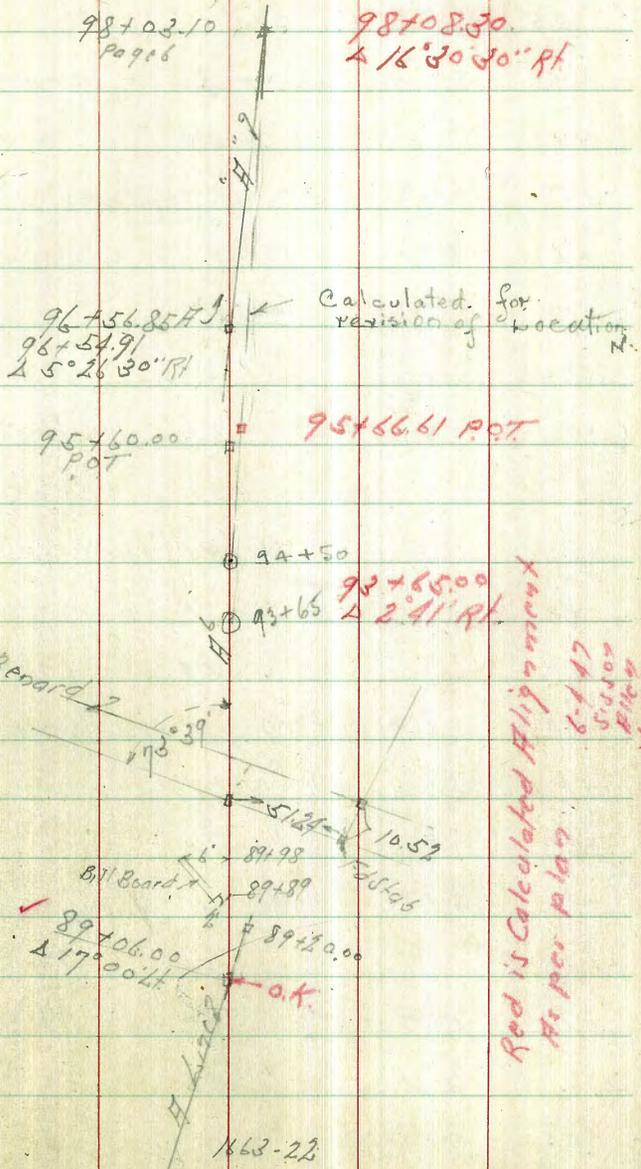 98+03.10
Page 6
98+08.30
Δ 16°30'30" Rt
"A"
Calculated for
revision of Location
96+56.85 A
96+54.91
Δ 5°26'30" Rt
95+66.61 P.O.T.
95+60.00
P.O.T
94+50
93+65.00
Δ 2°41' Rt.
93+65
73°39'
51.24
10.52
Fd Stab
6 89+98
Bill Board
2 89+89
89+06.00
Δ 17°00' Lt.
89+20.00
O.K.
Red is Calculated Alignment
As per plan
6-4-47
Sisson
1663-22